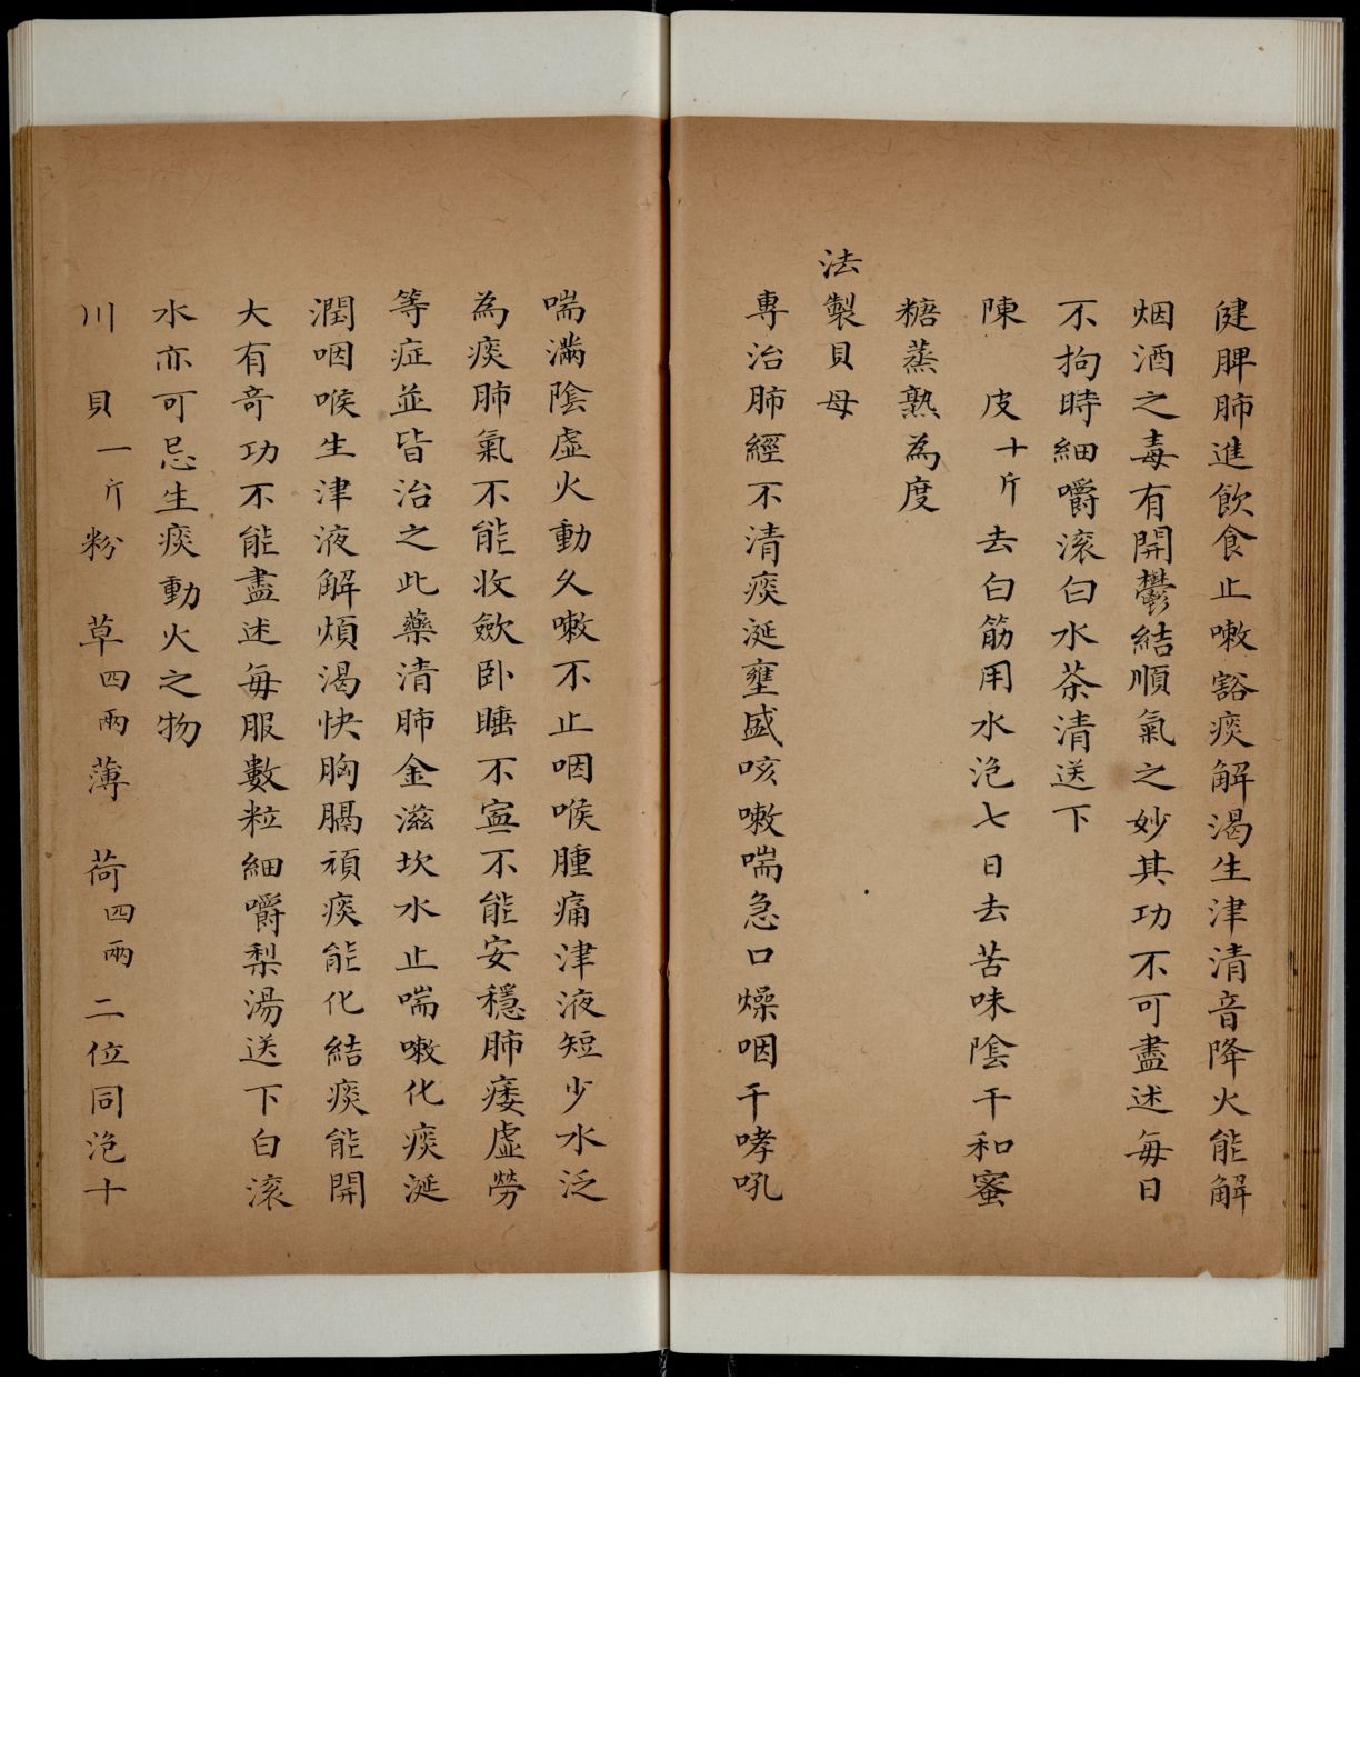 健脾肺進飲食止嗽豁痰解渴生津清音降火能解
烟酒之毒有開鬱結順氣之妙其功不可盡述每日
不拘時細嚼滚白水茶清送下
陳皮十斤去白筋用水泡七日去苦味陰干和蜜
糖蒸熟為度
法製貝母
專治肺經不清痰涎壅盛咳嗽喘急口燥咽干哮吼
喘滿陰虛火動久嗽不止咽喉腫痛津液短少水泛
為痰肺氣不能收歛卧睡不寧不能安穩肺痿虛勞
等症並皆治之此藥清肺金滋坎水止喘嗽化痰涎
潤咽喉生津液解煩渴快胸膈頑痰能化結痰能開
大有竒功不能盡述每服數粒細嚼梨湯送下白滚
水亦可忌生痰動火之物
川貝一斤粉草四兩薄荷四兩二位同泡十